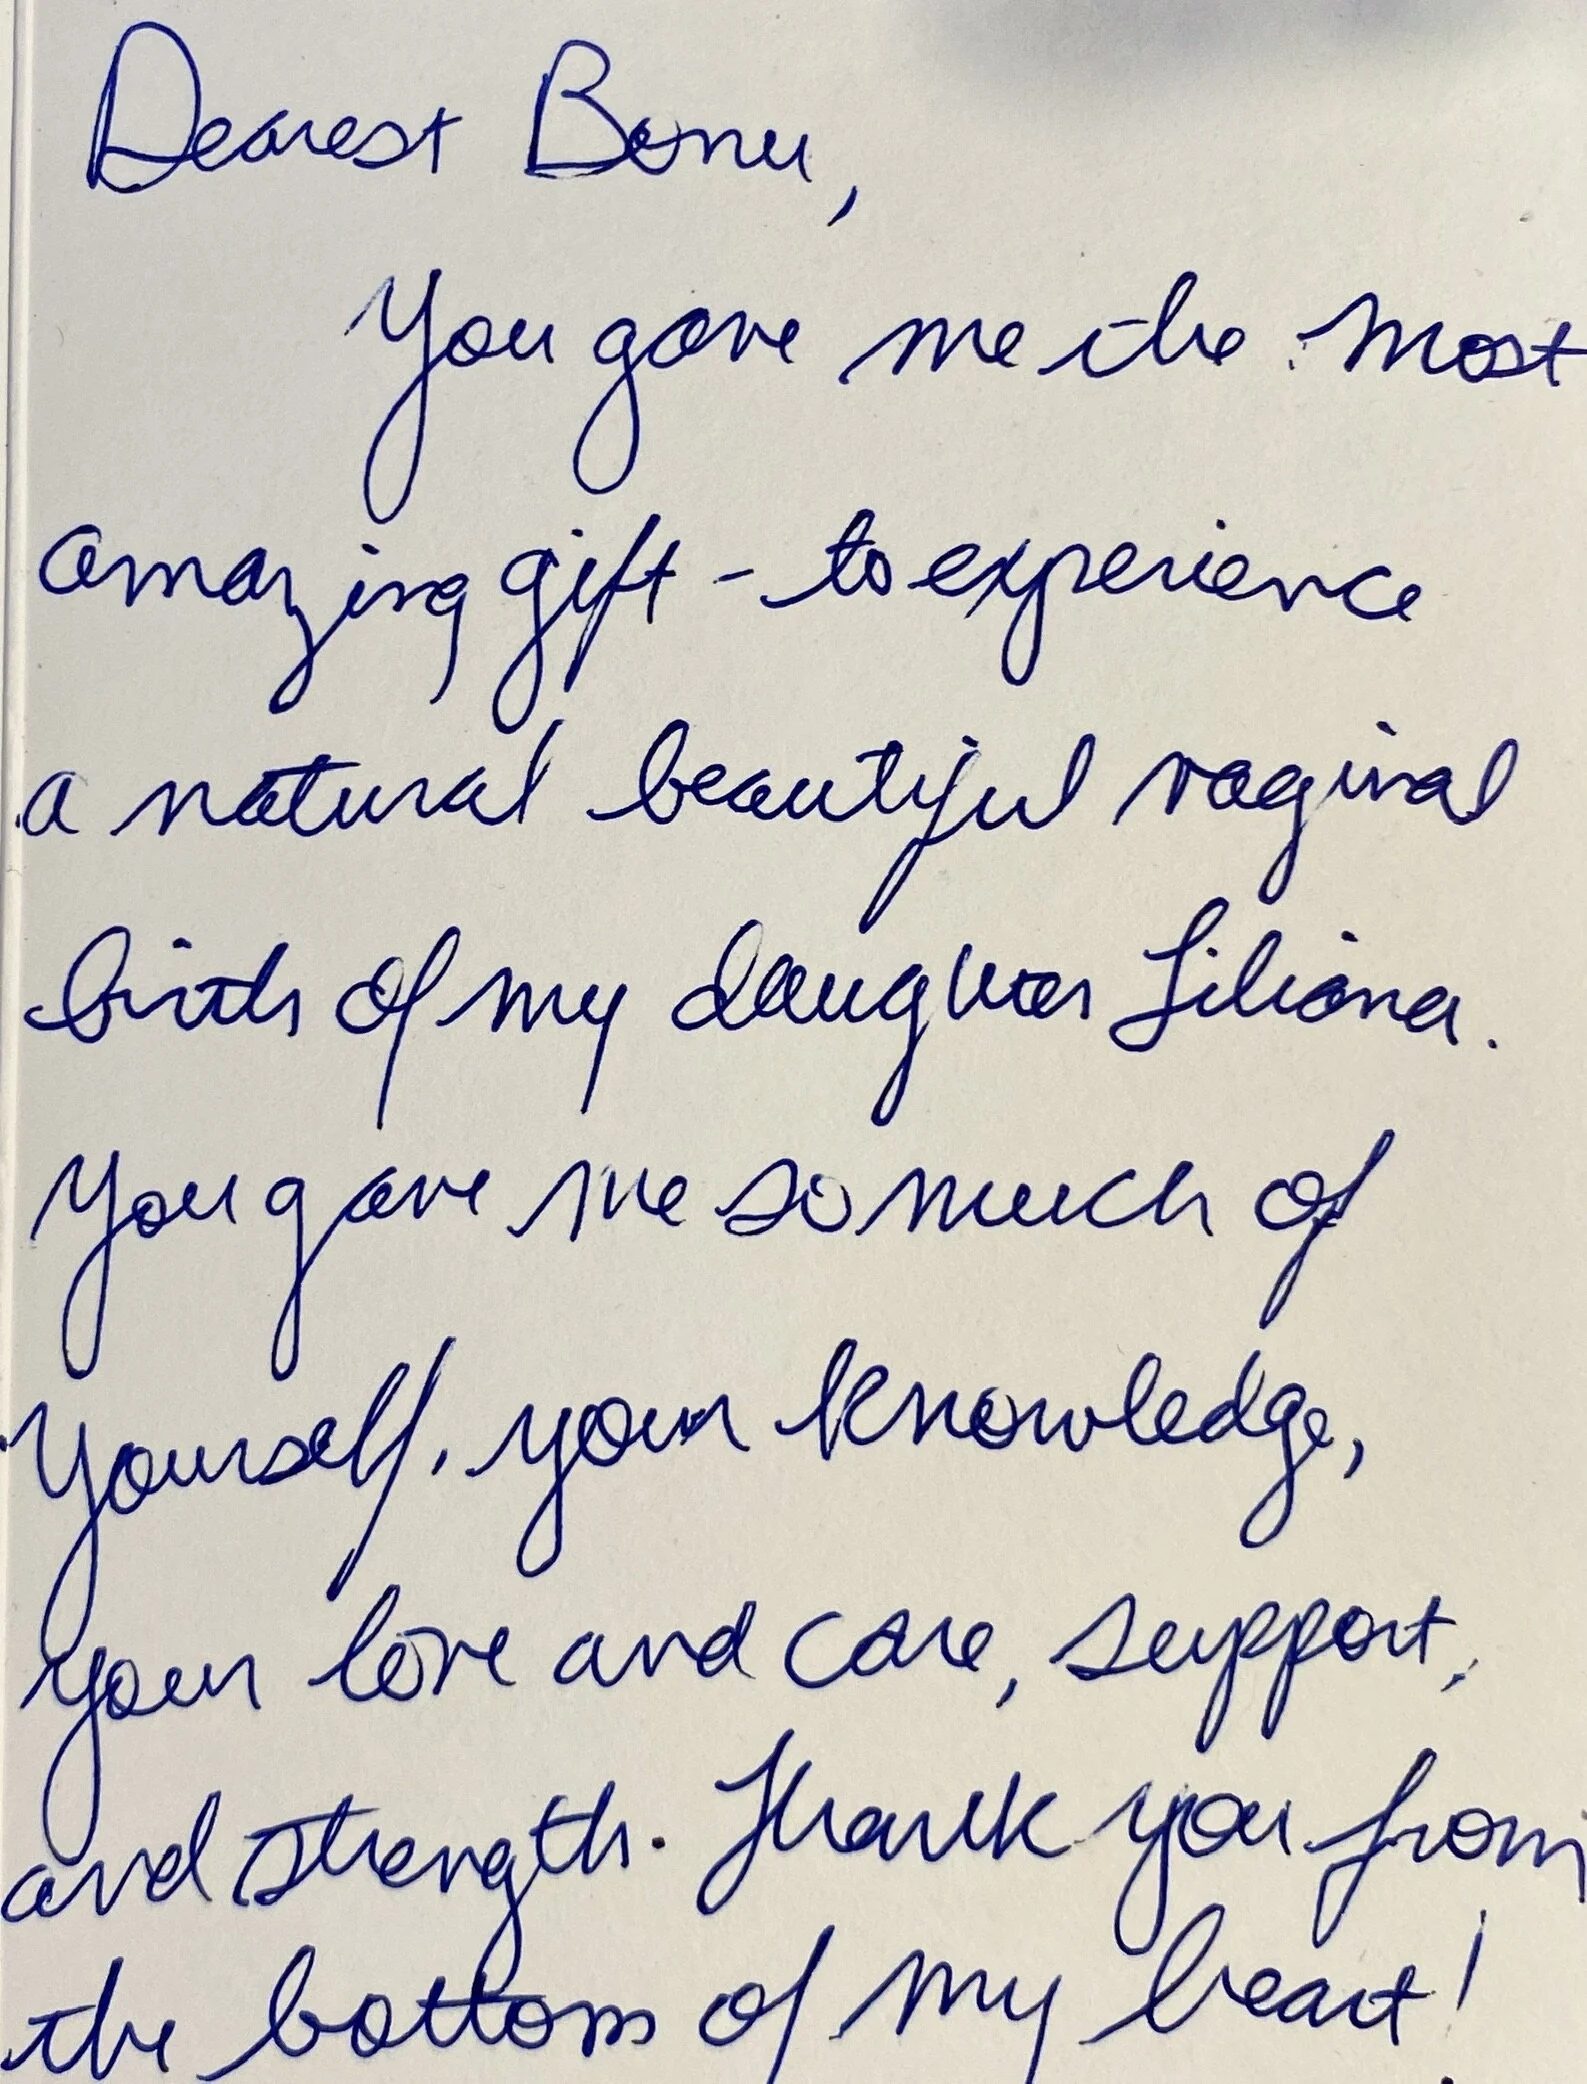 Dearest Bonu,
You gave me the most
amazing gift - to experience
a natural beautiful vaginal
birth of my daughter Liliana.
You gave me so much of
yourself, your knowledge,
your love and care, support,
and strength. Thank you from
the bottom of my heart!